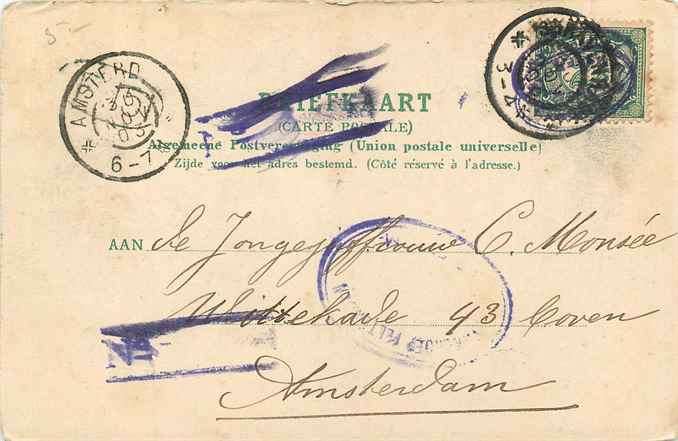 5-
AMSTERD.
6-7
3-4
BRIEFKAART
(CARTE POSTALE)
Algemeene Postvereeniging (Union postale universelle)
Zijde voor het adres bestemd. (Côté réservé à l'adresse.)
AAN de Jongejuffrouw C. Monsée
Wittekade 43 boven
Amsterdam